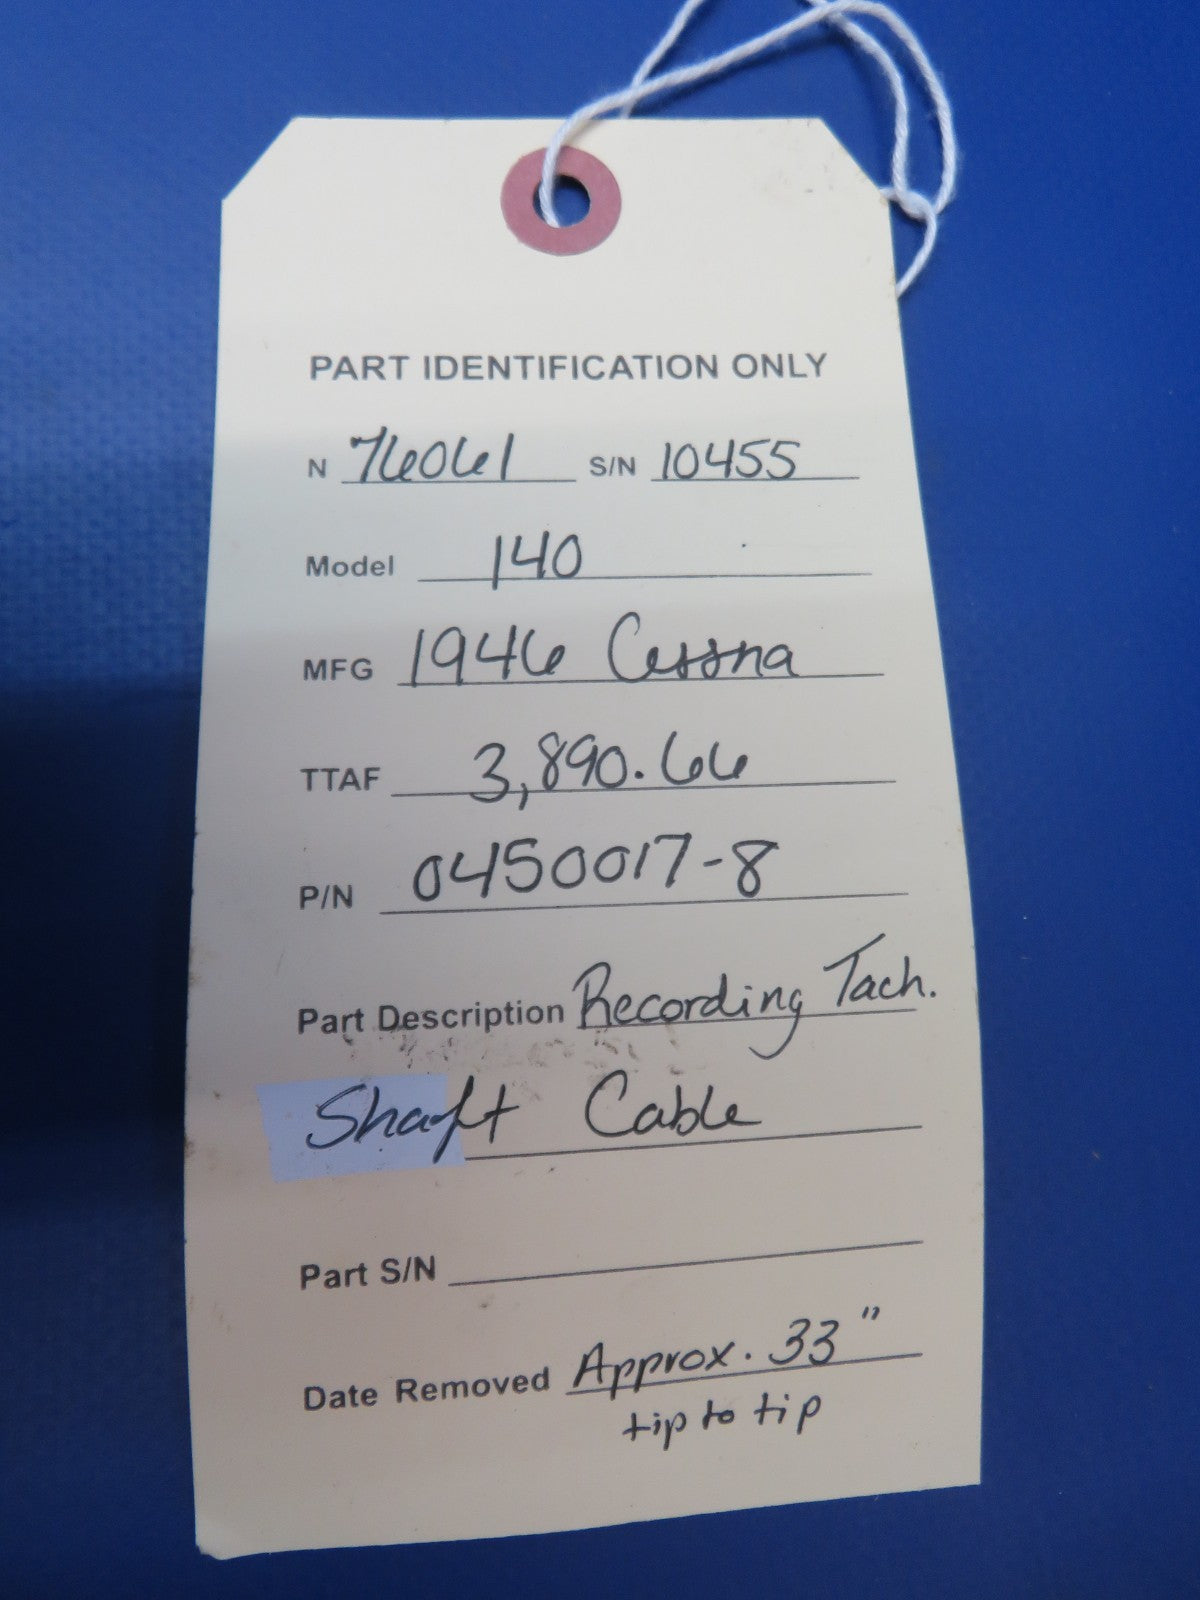 PART IDENTIFICATION ONLY
N 76061 S/N 10455
Model 140
MFG 1946 Cessna
TTAF 3,890.66
P/N 0450017-8
Part Description Recording Tach.
Shaft Cable
Part S/N
Date Removed Approx. 33"
tip to tip